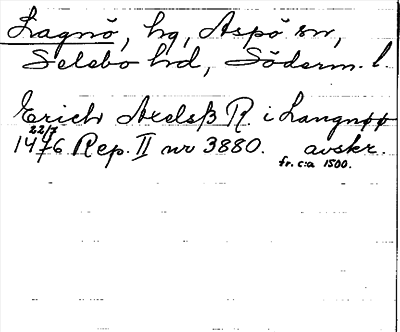 Lagnö, hg, Aspö sn,
Selebo hd, Söderm. l.
Erich Axelsß R. i Langnøø
22/7
1476 Rep. II nr 3880. avskr.
fr. c:a 1500.